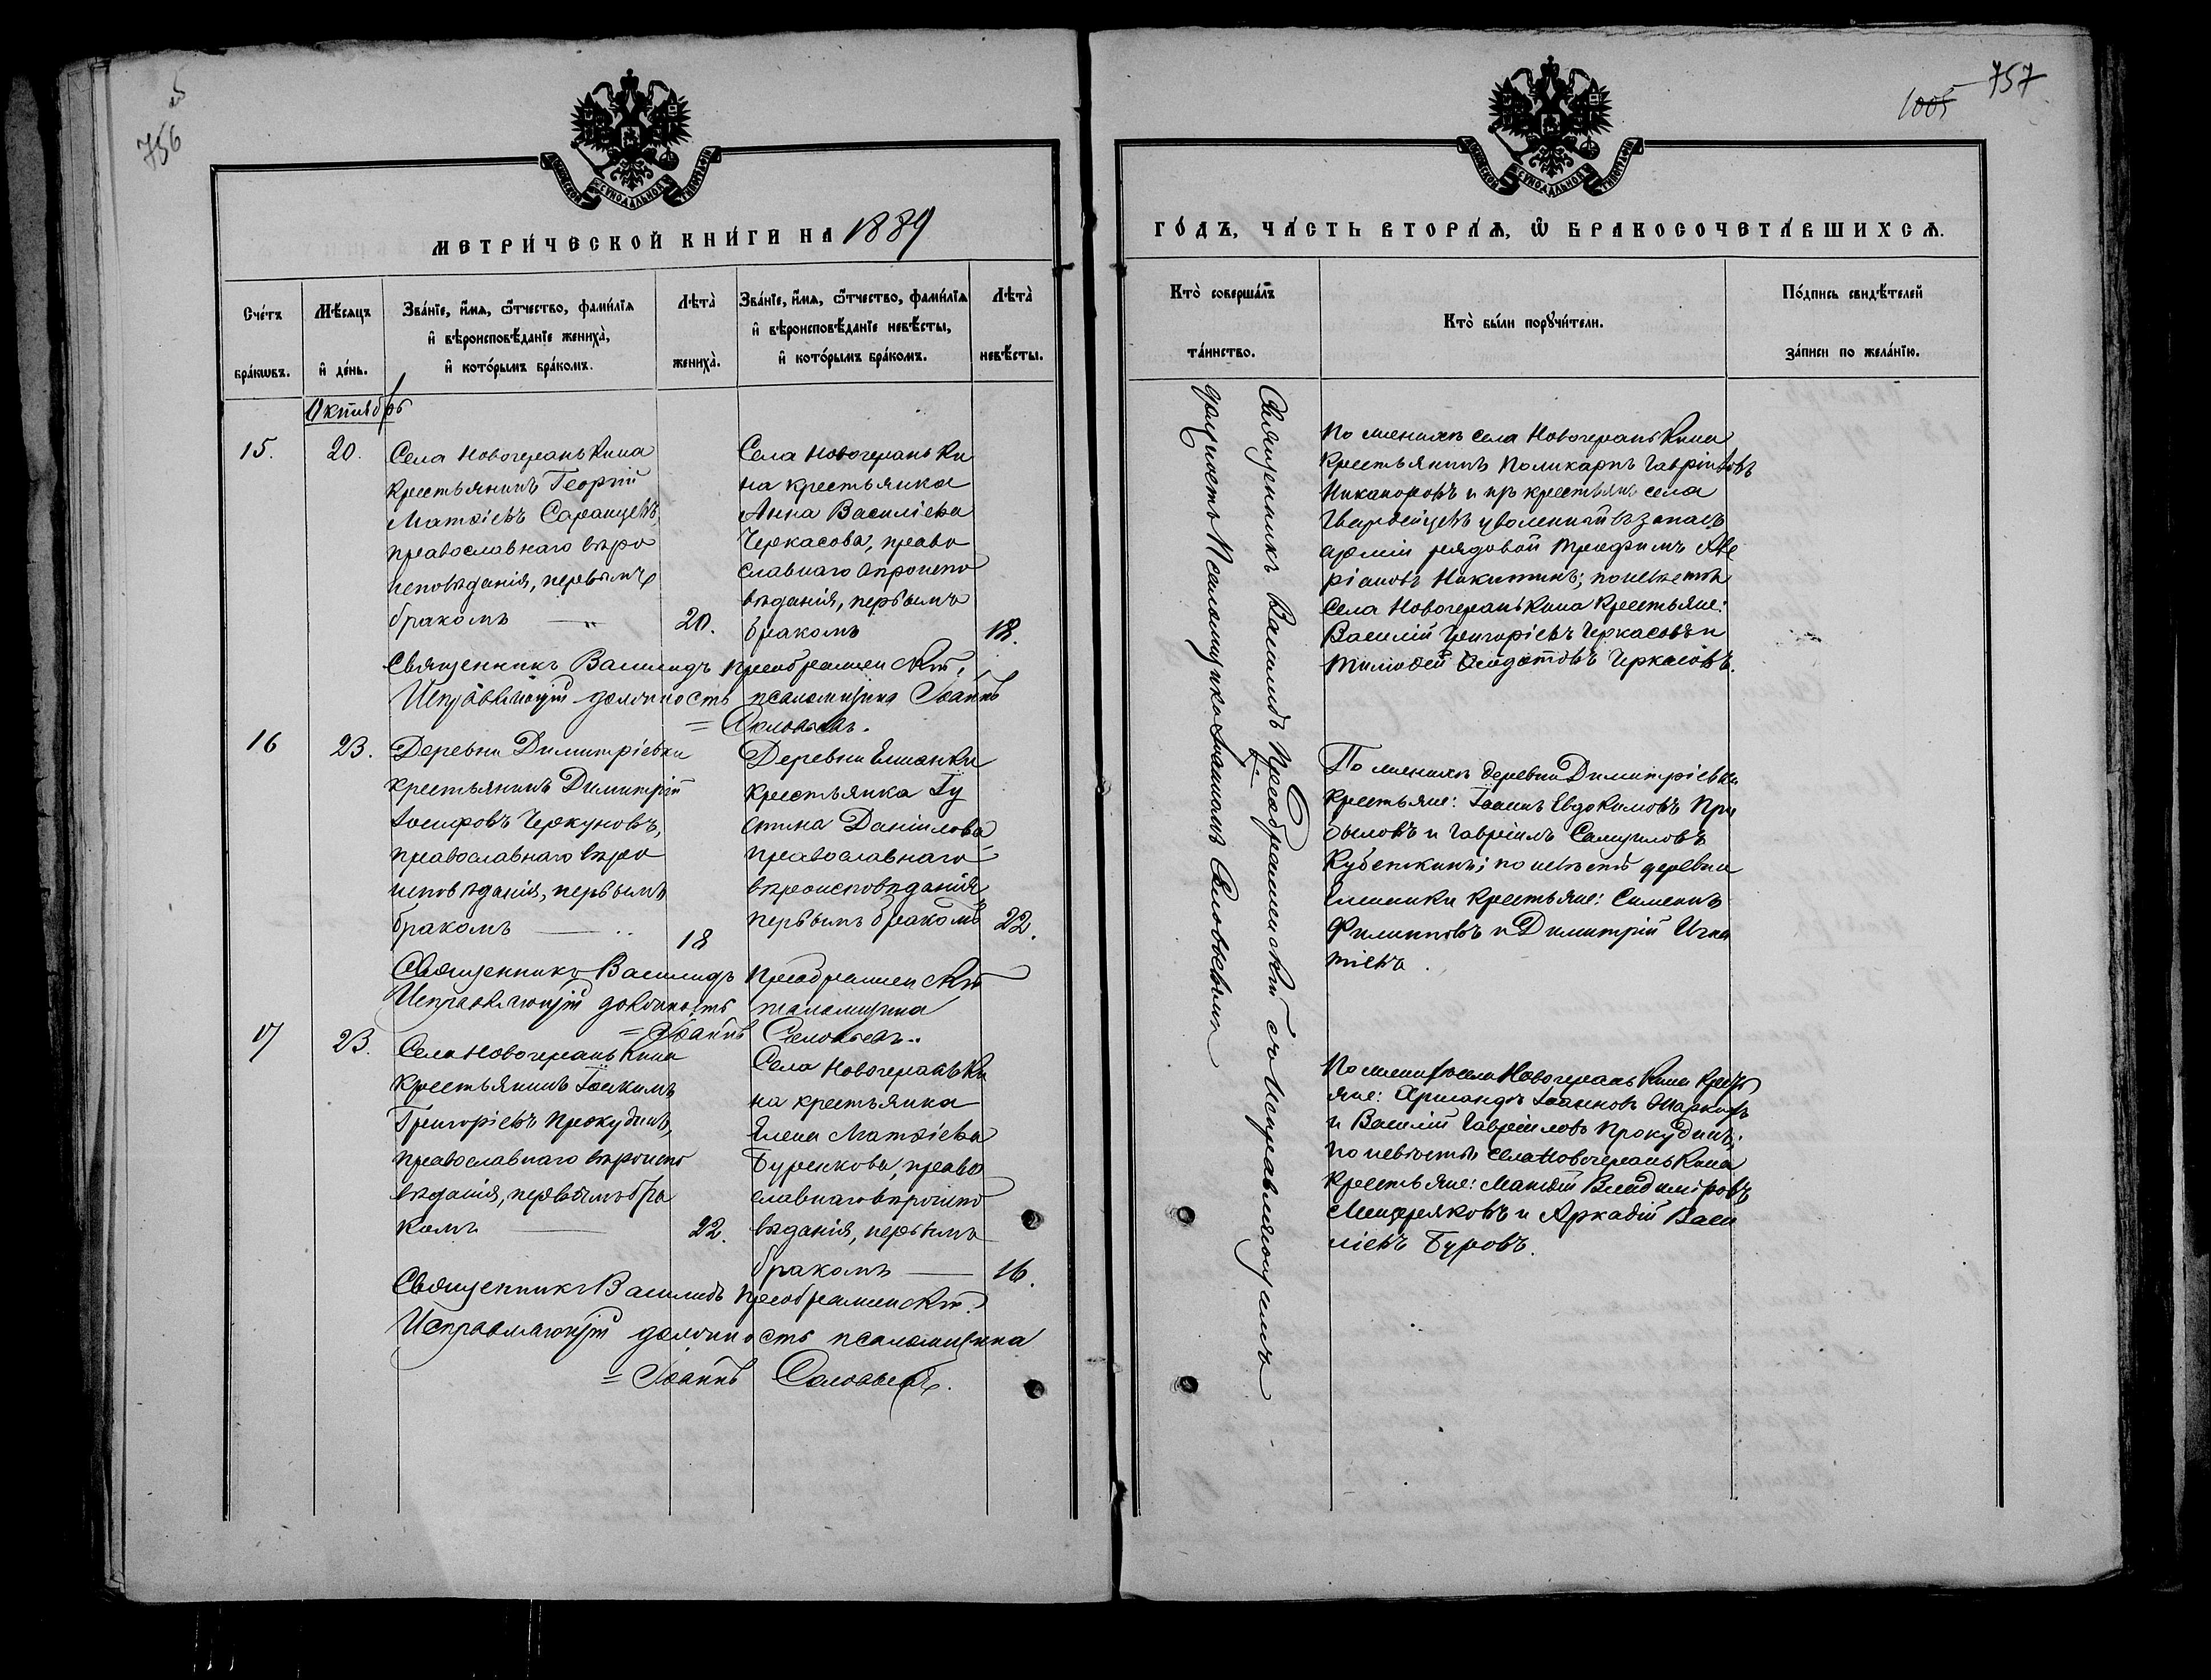 756
МОСКОВСКОЙ СУНОДАЛЬНОЙ ТИПОГРАФІИ
МЕТРИ́ЧЕСКОЙ КНИ́ГИ НА 1889
Сче́тъ бра́кѡвъ.
Мѣ́сяцъ и҆ де́нь.
Зва́нїе, и҆́мѧ, ѻ҆́тчество, фамѝлїѧ
и҆ вѣроисповѣ́данїе жениха̀,
и҆ кото́рымъ бра́комъ.
Лѣта̀ жениха̀.
Зва́нїе, и҆́мѧ, ѻ҆́тчество, фамѝлїѧ
и҆ вѣроисповѣ́данїе невѣ́сты,
и҆ кото́рымъ бра́комъ.
Лѣта̀ невѣ́сты.
Октябрь
15.
20.
Села Новочеранькина
крестьянинъ Георгій
Матвіевъ Саранцевъ,
православнаго вѣро
исповѣданія, первымъ
бракомъ
20.
Села Новочераньки
на крестьянка
Анна Василіева
Черкасова, право
славнаго вѣроиспо
вѣданія, первымъ
бракомъ
18.
Священникъ Василидъ Преображенскій,
Исправляющій должность псаломщика Іоаннъ
= Соловьевъ.
16
23.
Деревни Димитріевки
крестьянинъ Димитрій
Іосифовъ Черкуновъ,
православнаго вѣро
исповѣданія, первымъ
бракомъ
18
Деревни Елшанки
крестьянка Іу
стина Даніилова
православнаго
вѣроисповѣданія,
первымъ бракомъ
22.
Священникъ Василидъ Преображенскій
Исправляющій должность псаломщика
= Іоаннъ Соловьевъ.
17
23.
Села Новочеранькина
крестьянинъ Іоакимъ
Григорієвъ Прокудинъ,
православнаго вѣроиспо
вѣданія, первымъ бра
комъ
22.
Села Новочераньки
на крестьянка
Елена Матвіева
Буренкова, право
славнаго вѣроиспо
вѣданія, первымъ
бракомъ
16.
Священникъ Василидъ Преображенскій.
Исправляющій должность псаломщика
= Іоаннъ Соловьевъ.
1005
757
МОСКОВСКОЙ СУНОДАЛЬНОЙ ТИПОГРАФІИ
ГО́ДЪ, ЧА́СТЬ ВТОРА́Ѧ, Ѡ҆ БРАКОСОЧЕТА́ВШИХСѦ.
Кто̀ соверша́лъ та́инство.
Кто̀ бы́ли порꙋчи́тели.
По́дпись свидѣ́телей
за́писи по жела́нїю.
Священникъ Василидъ Преображенскій съ Исправляющимъ
должность Псаломщика Іоанномъ Соловьевымъ
По женихѣ села Новочеранькина
крестьянинъ Поликарпъ Гавріиловъ
Никаноровъ и изъ крестьянъ села
Гвардейцевъ уволенный въ запасъ
арміи рядовой Трофимъ Аве
ріановъ Никитинъ; по невѣстѣ
села Новочеранькина крестьяне:
Василій Григорієвъ Черкасовъ и
Тимофей Ѳедотовъ Черкасовъ.
По женихѣ деревни Димитріевки
крестьяне: Іоаннъ Евдокимовъ При
быловъ и Гавріилъ Самуиловъ
Кубеткинъ; по невѣстѣ деревни
Елшанки крестьяне: Симеонъ
Филипповъ и Димитрій Игна
тіевъ.
По женихѣ села Новочеранькина кресть
яне: Іоанновъ Шарковъ
и Василій Гавріиловъ Прокудинъ;
по невѣстѣ села Новочеранькина
крестьяне: Владиміровъ
Мещеряковъ и Аркадій Васи
ліевъ Буровъ.